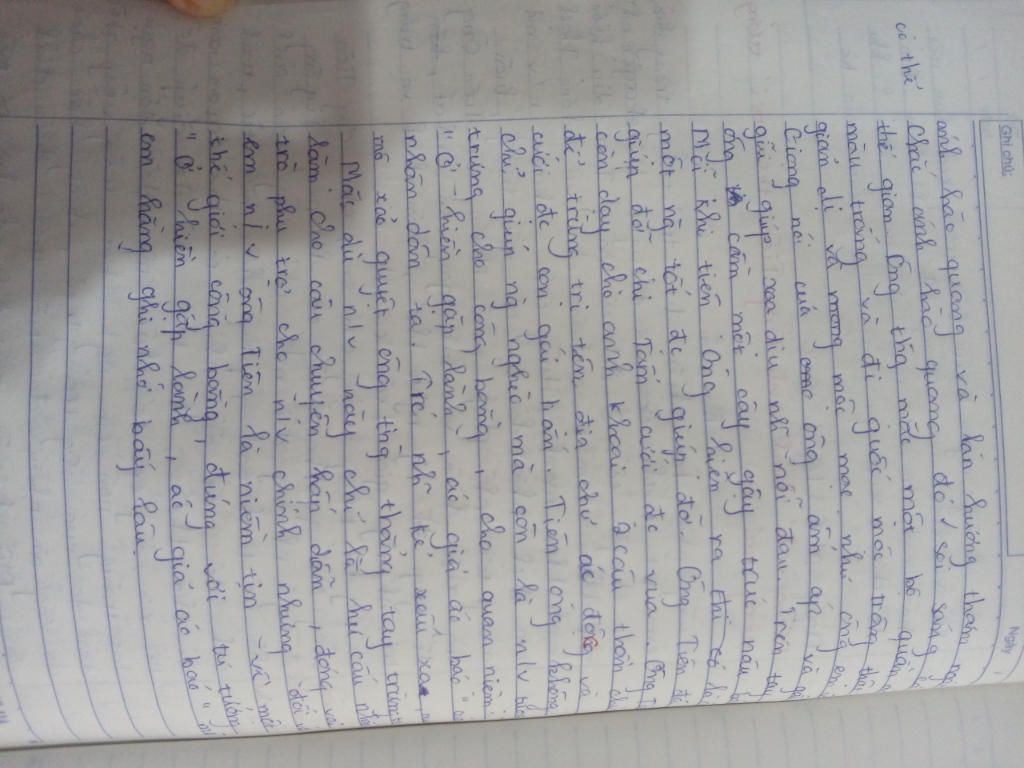 Ghi chú:
Ngày
có thể
ánh hào quang và làn hương thơm
Chiếc ánh hào quang đó soi sáng
thế gian. Ông thg mặc một bộ quần
màu trắng và đi guốc mộc trông
giản dị và mộc mạc như ông
Giọng nói của ông ấm áp và
gũi giúp xoa dịu nhg nỗi đau. Trên tay
ông cầm một cây gậy trúc nâu
Mỗi khi tiên ông hiện ra thì có
một ng tốt đc giúp đỡ. Ông Tiên đã
giúp đỡ chị Tấm cưới đc vua. Ông
còn dạy cho anh khoai 2 câu thần
để trừng trị tên địa chủ ác độc và
cưới đc con gái hắn. Tiên ông không
chỉ giúp ng nghèo mà còn là nlv
trưng cho công bằng, cho quan niệm
" Ở hiền gặp lành, ác giả ác báo "
nhân dân ta. Trc nhg kẻ xấu xa
mô xẻ quyệt ông thg thẳng tay
Mặc dù nlv này chỉ là hư cấu
làm cho câu chuyện hấp dẫn, đóng vai
trò phụ trợ cho nlv chính nhưng đối
em nlv ông Tiên là niềm tin về một
thế giới công bằng, đúng với tư tưởng
" Ở hiền gặp lành, ác giả ác báo "
em hằng ghi nhớ bấy lâu.